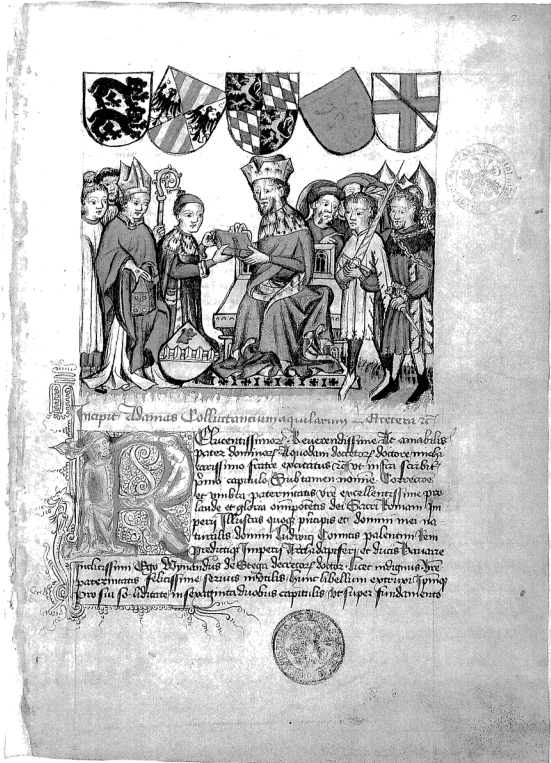 2
Incipit Adamas Colluctancium aquilarum Et cetera
Reluentissimorum Reverendissime Ac amabilis
pater dominorum A quodam decretorum doctore michi
carissimo fratre excitatus ut infra scribitur
primo capitulo Sub tamen nomine Correccione
et umbra paternitatis vestre excellentissime pro
laude et gloria omnipotentis dei Sacri Romani Im
perij Illustris quoque principis et domini mei na
turalis domini Ludwig Comitis palentini Reni
predictique Imperij Archidapiferi et ducis Bavarie
inclitissimi Ego Wynandus de Stega decretorum doctor licet indignus
paternitatis felicissime servus inutilis hunc libellum
pro sui soliditate in septuaginta duobus capitulis ut super fundamento